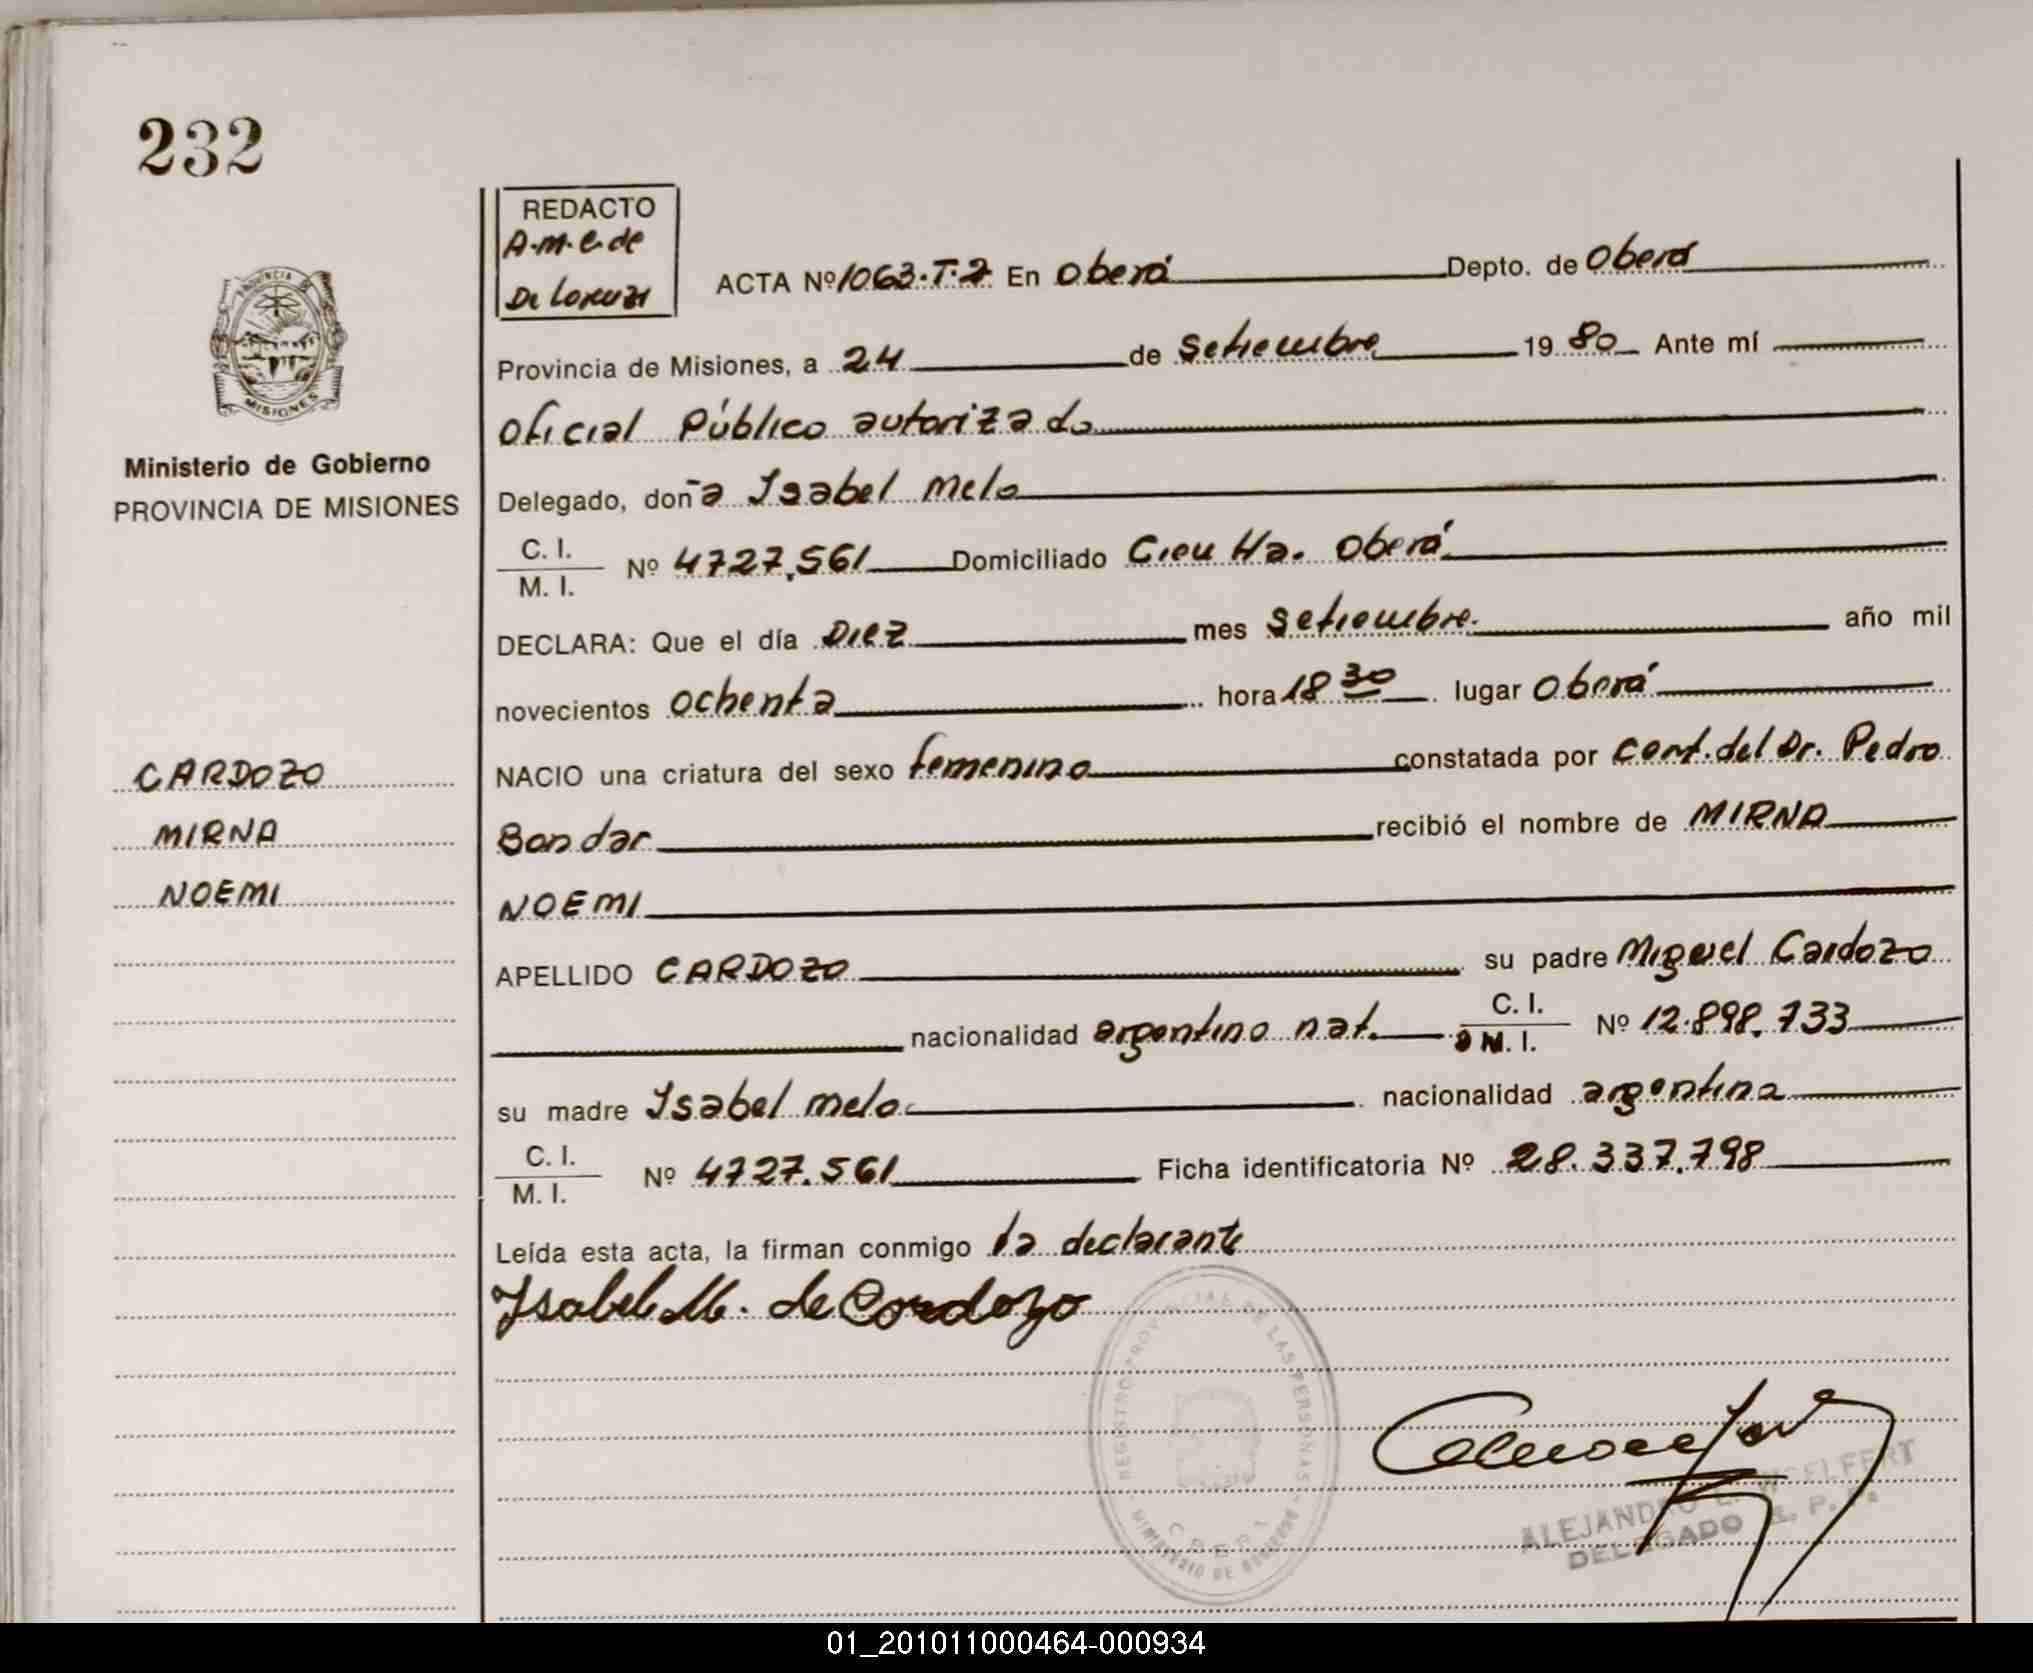 232
REDACTO
A.M.C. de
De Lorenzi
ACTA Nº 1063.T.2 En Oberá Depto. de Oberá
Provincia de Misiones, a 24 de Setiembre 1980 Ante mí
Oficial Público autorizado
Ministerio de Gobierno
PROVINCIA DE MISIONES
Delegado, doña Isabel Melo
C. I.
M. I. Nº 4727.561 Domiciliado Cien Ha. Oberá
DECLARA: Que el día Diez mes Setiembre año mil
novecientos ochenta hora 18 30 lugar Oberá
CARDOZO
MIRNA
NOEMI
NACIO una criatura del sexo femenino constatada por Cert. del Dr. Pedro
Bondar recibió el nombre de MIRNA
NOEMI
APELLIDO CARDOZO su padre Miguel Cardozo
nacionalidad argentino nat. C. I.
M. I. Nº 12.898.733
su madre Isabel Melo nacionalidad argentina
C. I.
M. I. Nº 4727.561 Ficha identificatoria Nº 28.337.798
Leída esta acta, la firman conmigo la declarante
Isabel M. de Cardozo
REGISTRO PROVINCIAL DE LAS PERSONAS
MINISTERIO DE GOBIERNO
OBERA
ALEJANDRO
DELEGADO R. P. P.
PROVINCIA
MISIONES
01_201011000464-000934